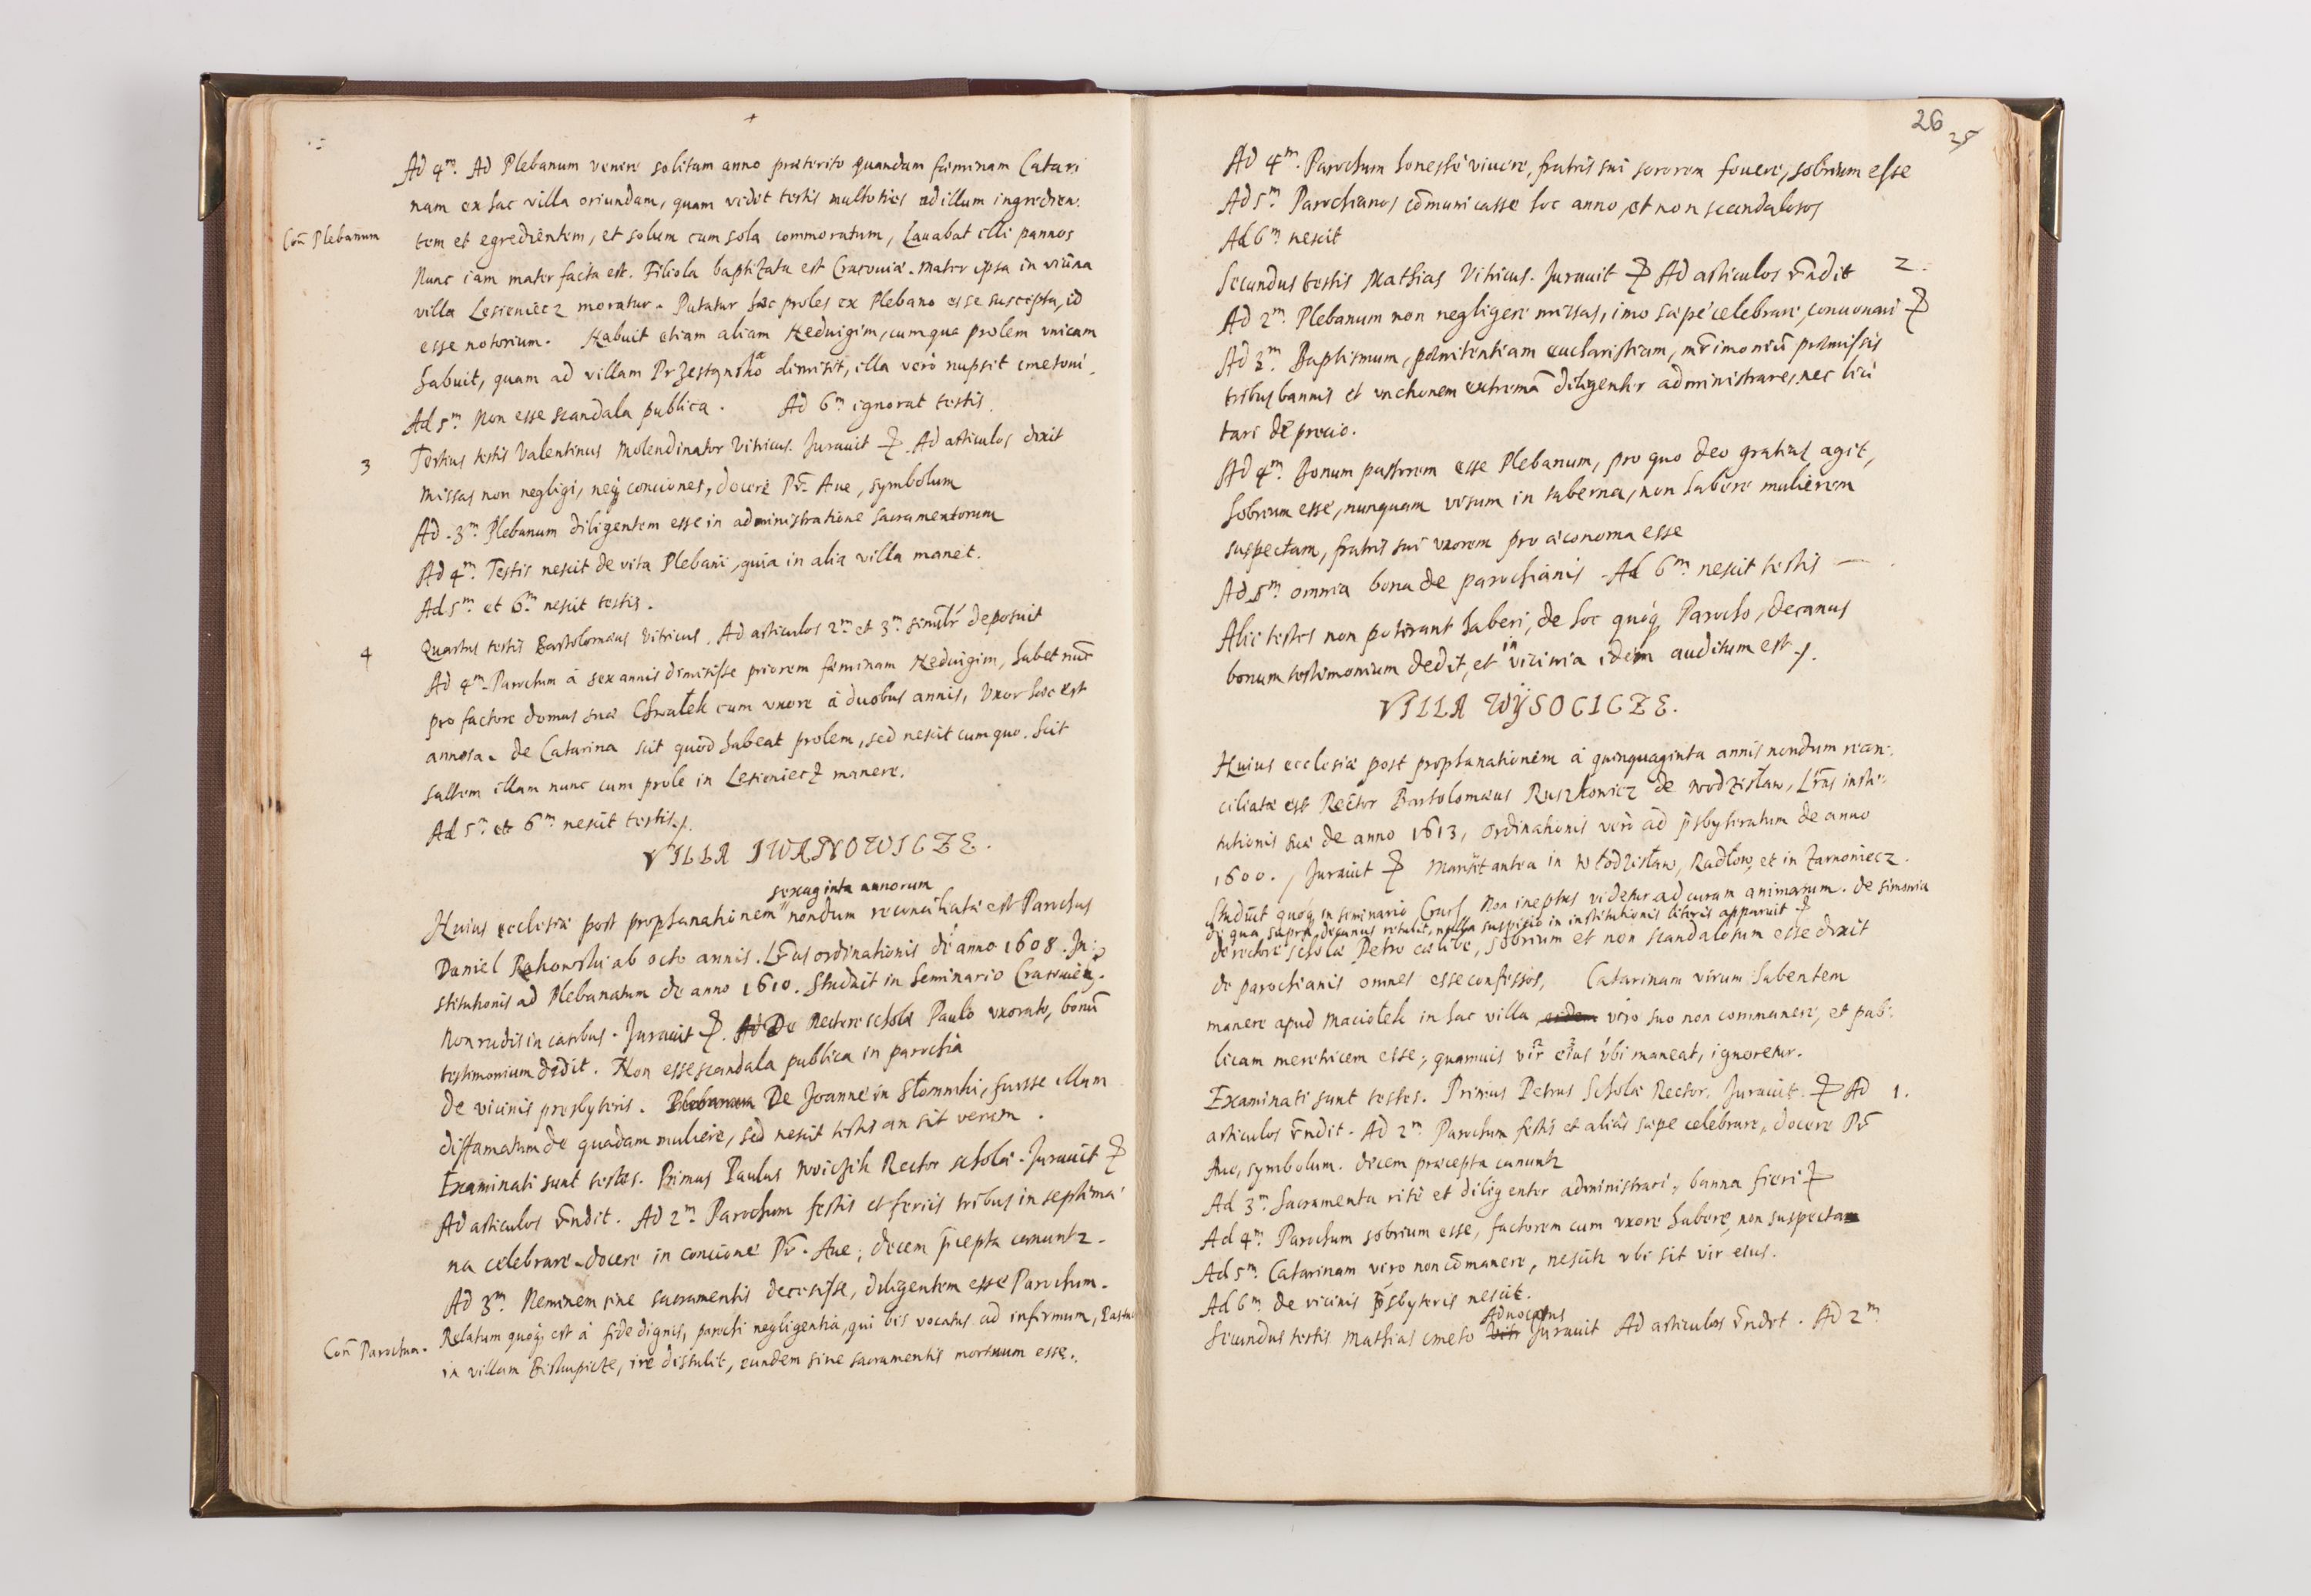 Ad 4m. Ad Plebanum venire solitam anno præterito quandam fæminam Catari
nam ex hac villa oriundam, quam vidit testis multoties ad illum ingredien.
Con̄ Plebanum
tem et egredientem, et solum cum sola commoratum, Lauabat illi pannos
Nunc iam mater facta est. Filiola baptizata est Cracouiæ. Mater ipsa in vicina
villa Lesieniecz moratur. Putatur hæc proles ex Plebano esse suscepta, id
esse notorium. Habuit etiam aliam Heduigim, cumqua prolem vnicam
habuit, quam ad villam dimisit, illa verò nupsit cmetoni.
Ad 5m. Non esse scandala publica. Ad 6m ignorat testis.
3 Tertius testis Valentinus Molendinator Vitricus. Jurauit Ad articulos dixit
Missas non negligi, neq conciones, docere Pr̄. Aue, symbolum
Ad. 3m. Plebanum diligentem esse in administratione sacramentorum
Ad 4m. Testis nescit de vita Plebani, quia in alia villa manet.
Ad 5m. et 6m. nescit testis.
4 Quartus testis Bartolomæus Vitricus. Ad articulos 2m. et 3m. simil̄r deposuit
Ad 4m. Parochum à sex annis dimisisse priorem fæminam Heduigim, habet nūc
pro factore domus suæ Chwałek cum vxore à duobus annis, Vxor hæc est
annosa. de Catarina scit quòd habeat prolem, sed nescit cum quo. Scit
saltem illam nunc cum prole in Lesieniecz manere.
Ad 5m et 6m nescit testis.
VILLA IWANOWICZE.
sexaginta annorum
Huius ecclesiæ post prophanationem nondum reconciliatæ est Parochus
Daniel Rakowski ab octo annis. Lr̄as ordinationis de anno 1608. In
stitutionis ad Plebanatum de anno 1610. Studuit in Seminario
Non rudis in casibus. Jurauit Ad De Rectore scholæ Paulo vxorato, bonū
testimonium dedit. Non esse scandala publica in parochia
de vicinis presbyteris. Plebanum De Joanne in Słomniki, fuisse illum
diffamatum de quadam muliere, sed nescit testis an sit verum.
Examinati sunt testes. Primus Paulus Woiczik Rector scholæ. Jurauit
Ad articulos r̄ndit. Ad 2m. Parochum festis et feriis tribus in septima
na celebrare. docere in concione Pr̄. Aue, decem p̄cepta canunt.
Ad 3m. Neminem sine sacramentis decessisse, diligentem esse Parochum.
Relatum quoq est à fide dignis, parochi negligentia, qui bis vocatus ad infirmum,
Con̄ Parochum.
in villam ire distulit, eundem sine sacramentis mortuum esse.
26
25
Ad 4m. Parochum honestè viuere, fratris sui sororem fouere, sobrium esse
Ad 5m. Parochianos cōmunicasse hoc anno, et non scandalosos
Ad 6m nescit
Secundus testis Mathias Vitricus. Jurauit Ad articulos r̄ndit 2.
Ad 2m. Plebanum non negligere missas, imo sæpè celebrare, concionari
Ad 3m. Baptismum, pænitentiam eucharistiam, mr̄imoniū præmissis
tribus bannis et vnctionem extremā diligenter administrare, nec lici
tari de precio.
Ad 4m. Bonum pastorem esse Plebanum, pro quo deo gratias agit,
sobrium esse, nunquam visum in taberna, non habere mulierem
suspectam, fratris sui vxorem pro æconoma esse
Ad 5m. omnia bona de parochianis. Ad 6m. nescit testis
Alii testes non poterant haberi, de hoc quoq Parocho, decanus
bonum testimonium dedit, et in vicinia idem auditum est.
VILLA WYSOCICZE.
Huius ecclesiæ post prophanationem à quinquaginta annis nondum recon.
ciliatæ est Rector Bartolomæus Ruszkowicz de Wodzisław, Lr̄as insti-
tutionis suæ de anno 1613, ordinationis verò ad p̄sbyteratum de anno
1600. Jurauit Mansit antea in Włodzisław, Radłow, et in Zarnoniecz.
Studuit quoq in seminario Non ineptus videtur ad curam animarum. de simonia
de qua supra, decanus retulit, nulla suspicio in institutionis literis apparuit
de rectore scholæ Petro cælibe, sobrium et non scandalosum esse dixit
de parochianis omnes esse confessos, Catarinam virum habentem
manere apud Maciołek in hac villa, viro suo non commanere, et pub.
licam meretricem esse, quamuis vir eius vbi maneat, ignoretur.
Examinati sunt testes. Primus Petrus Scholæ Rector, Jurauit Ad 1.
articulos r̄ndit. Ad 2m. Parochum festis et aliàs sæpe celebrare, docere Pr̄
Aue, symbolum. decem præcepta canunt
Ad 3m. Sacramenta ritè et diligenter administrari, banna fieri
Ad 4m. Parochum sobrium esse, factorem cum vxore habere, non suspecta
Ad 5m. Catarinam viro non cōmanere, nescit vbi sit vir eius.
Ad 6m de vicinis p̄sbyteris nescit.
Aduocatus
Secundus testis Mathias cmeto Jurauit Ad articulos r̄ndet. Ad 2m